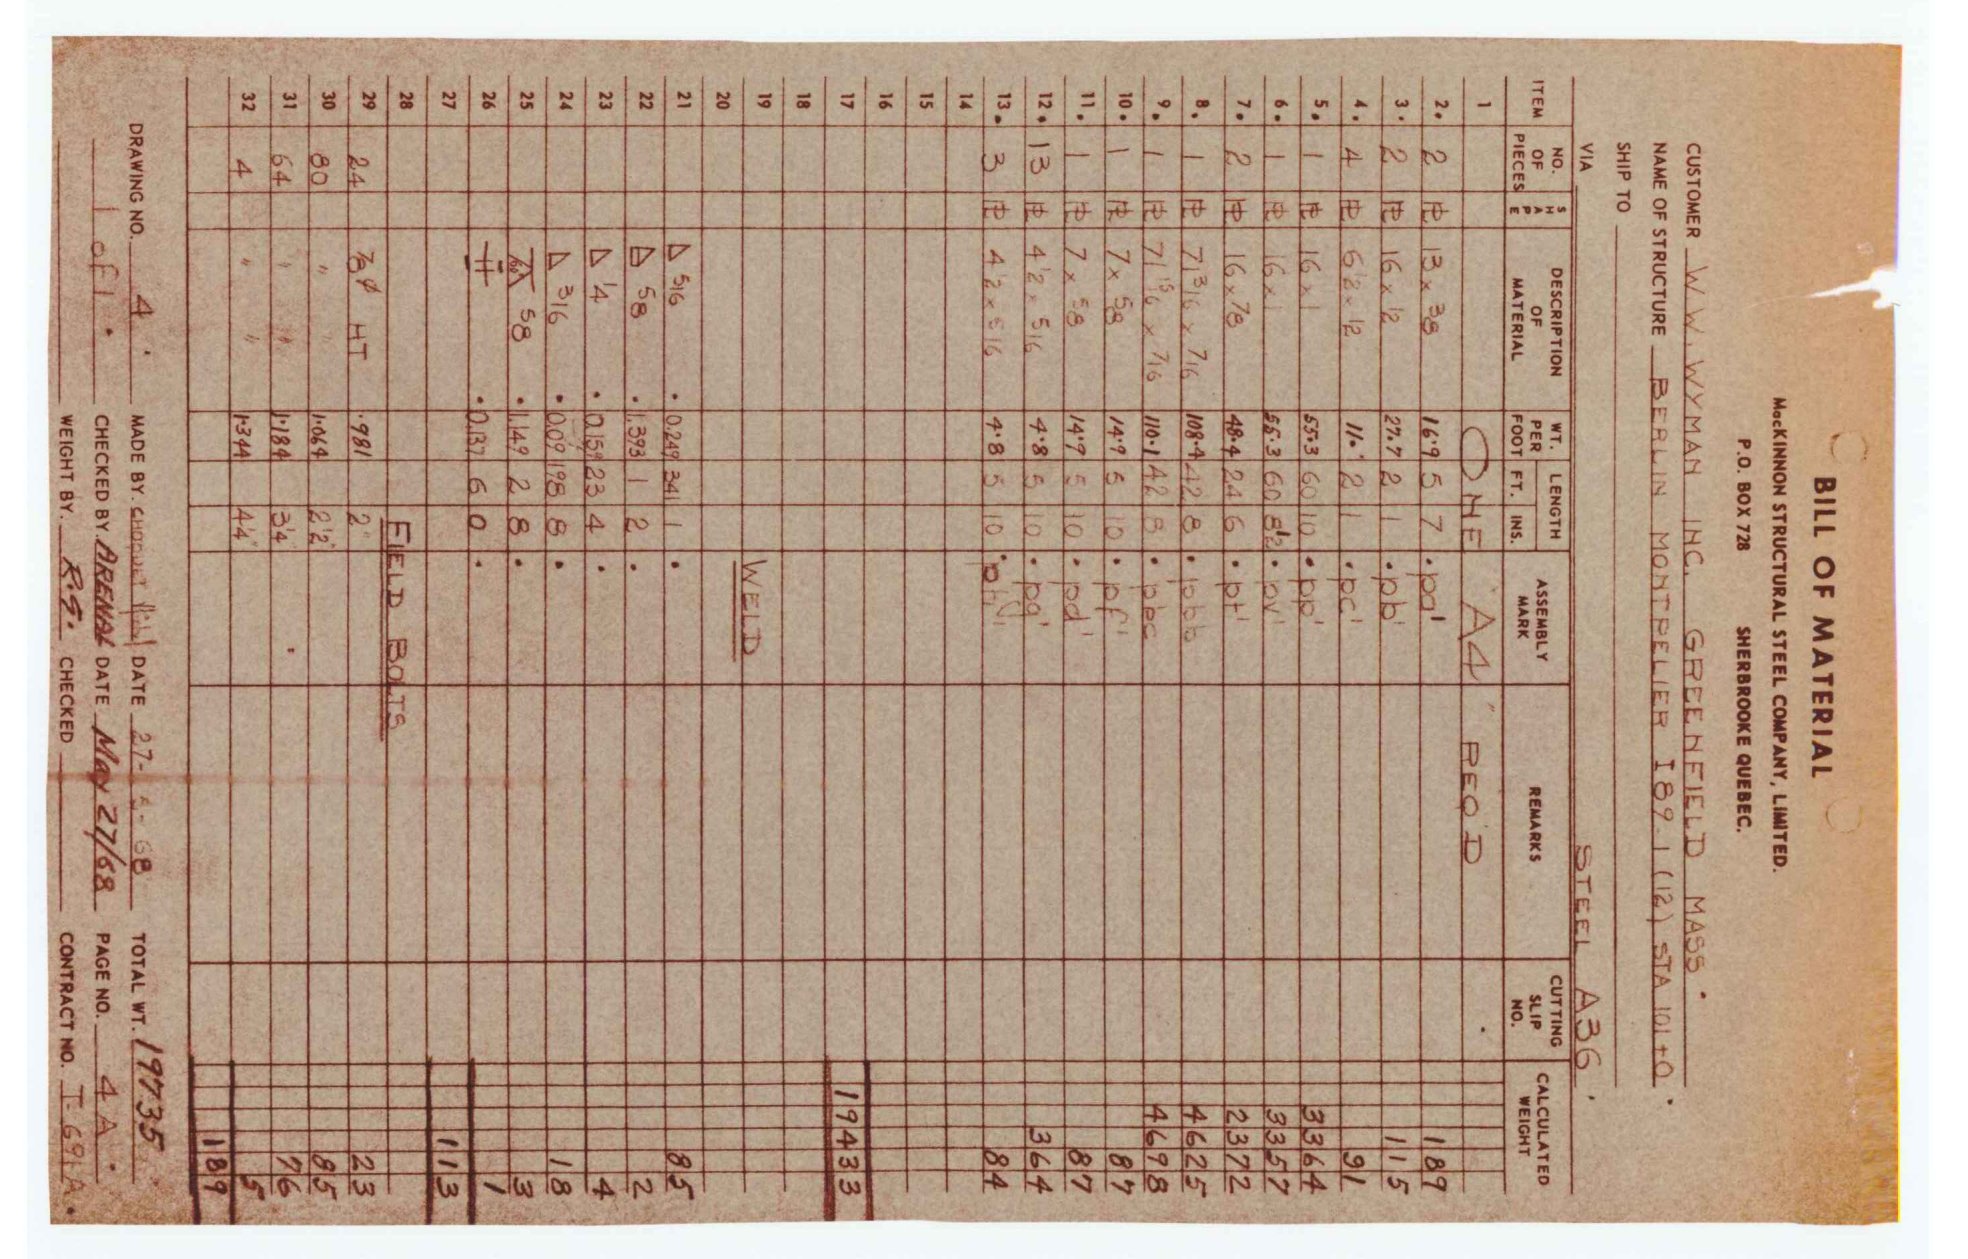 BILL OF MATERIAL
MacKINNON STRUCTURAL STEEL COMPANY, LIMITED.
P.O. BOX 728 SHERBROOKE QUEBEC.
CUSTOMER W.W. WYMAN INC. GREENFIELD MASS.
NAME OF STRUCTURE BERLIN MONTPELIER I89-1(12) STA 101+0
SHIP TO
VIA STEEL A36
ITEM NO. OF PIECES SHAPE DESCRIPTION OF MATERIAL WT. PER FOOT LENGTH FT. INS. ASSEMBLY MARK REMARKS CUTTING SLIP NO. CALCULATED WEIGHT
1 ONE "A4" REQ'D
2 2 PL 13 x 3/8 16.9 5 7 pa' 189
3 2 PL 16 x 1/2 27.2 2 1 pb' 115
4 4 PL 6 1/2 x 1/2 11. 2 1 pc' 91
5 1 PL 16 x 1 55.3 60 10 pp' 3364
6 1 PL 16 x 1 55.3 60 8 1/2 pv' 3357
7 2 PL 16 x 7/8 48.4 24 6 pt' 2372
8 1 PL 71 3/16 x 7/16 108.4 42 8 pbb 4625
9 1 PL 71 15/16 x 7/16 110.1 42 8 pbc 4698
10 1 PL 7 x 5/8 14.9 5 10 pf' 87
11 1 PL 7 x 5/8 14.9 5 10 pd' 87
12 13 PL 4 1/2 x 5/16 4.8 5 10 pg' 364
13 3 PL 4 1/2 x 5/16 4.8 5 10 ph' 84
14
15
16
17 19433
18
19 WELD
20
21 5/16 0.249 341 1 85
22 5/8 1.393 1 2 2
23 1/4 0.159 23 4 4
24 3/16 0.09 198 8 18
25 5/8 1.149 2 8 3
26 0.137 6 0 1
27 113
28 FIELD BOLTS
29 24 7/8 ø HT .981 2" 23
30 80 " " 1.064 2 1/2" 85
31 64 " " 1.184 3 1/4" 76
32 4 " " 1.344 4 1/4" 5
189
DRAWING NO. 4 MADE BY. DATE 27-5-68 TOTAL WT. 19735
1 of 1 CHECKED BY. ARENAL DATE May 27/68 PAGE NO. 4A
WEIGHT BY. R.G. CHECKED CONTRACT NO. T-691A